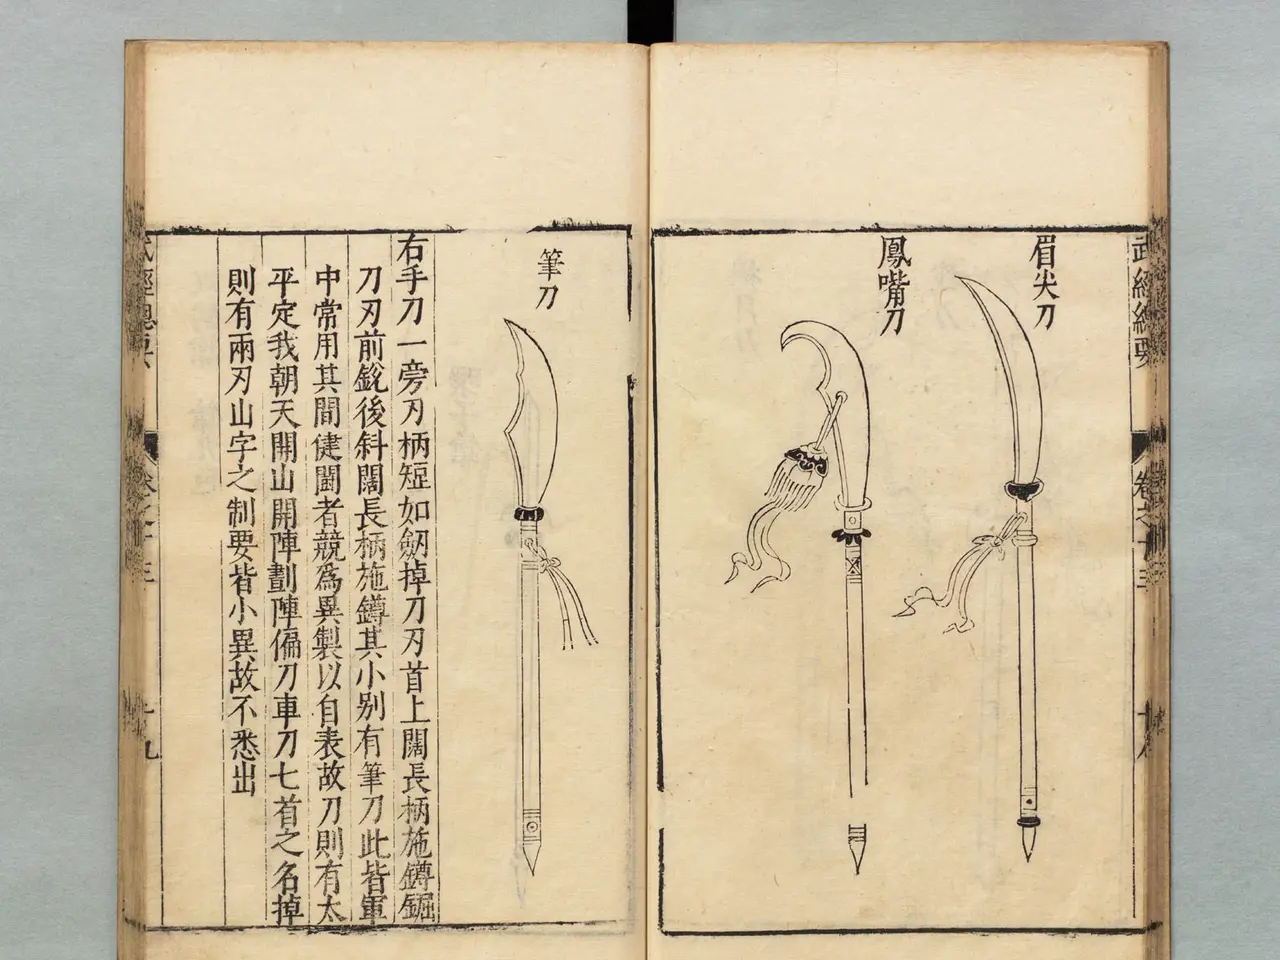 武經總要
卷之十三
十八
眉尖刀
鳳嘴刀
筆刀
右手刀一旁刃柄短如劒掉刀刃首上闊長柄施鐏鋸
刀刃前銳後斜闊長柄施鐏其小别有筆刀此皆軍
中常用其間健鬭者競爲異製以自表故刀則有太
平定我朝天開山開陣劃陣偏刀車刀七首之名掉
則有兩刃山字之制要皆小異故不悉出
武經總要
卷之十三
十九